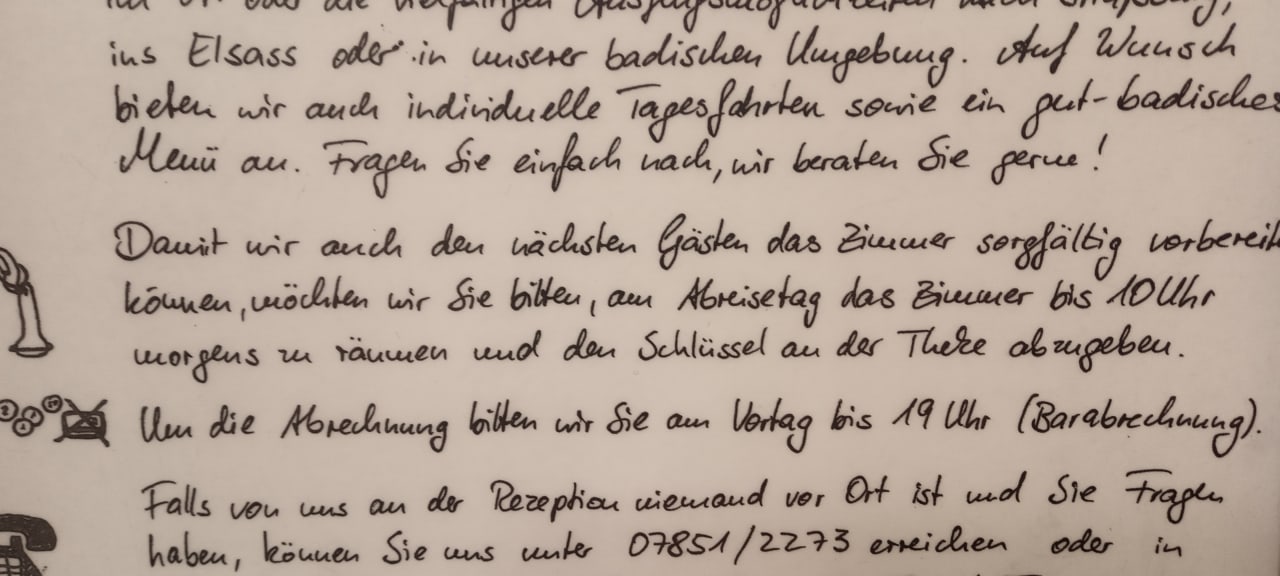 ins Elsass oder in unserer badischen Umgebung. Auf Wunsch
bieten wir auch individuelle Tagesfahrten sowie ein gut-badisches
Menü an. Fragen Sie einfach nach, wir beraten Sie gerne!
Damit wir auch den nächsten Gästen das Zimmer sorgfältig vorbereit
können, möchten wir Sie bitten, am Abreisetag das Zimmer bis 10 Uhr
morgens zu räumen und den Schlüssel an der Theke abzugeben.
Um die Abrechnung bitten wir Sie am Vortag bis 19 Uhr (Barabrechnung).
Falls von uns an der Rezeption niemand vor Ort ist und Sie Fragen
haben, können Sie uns unter 07851/2273 erreichen oder in